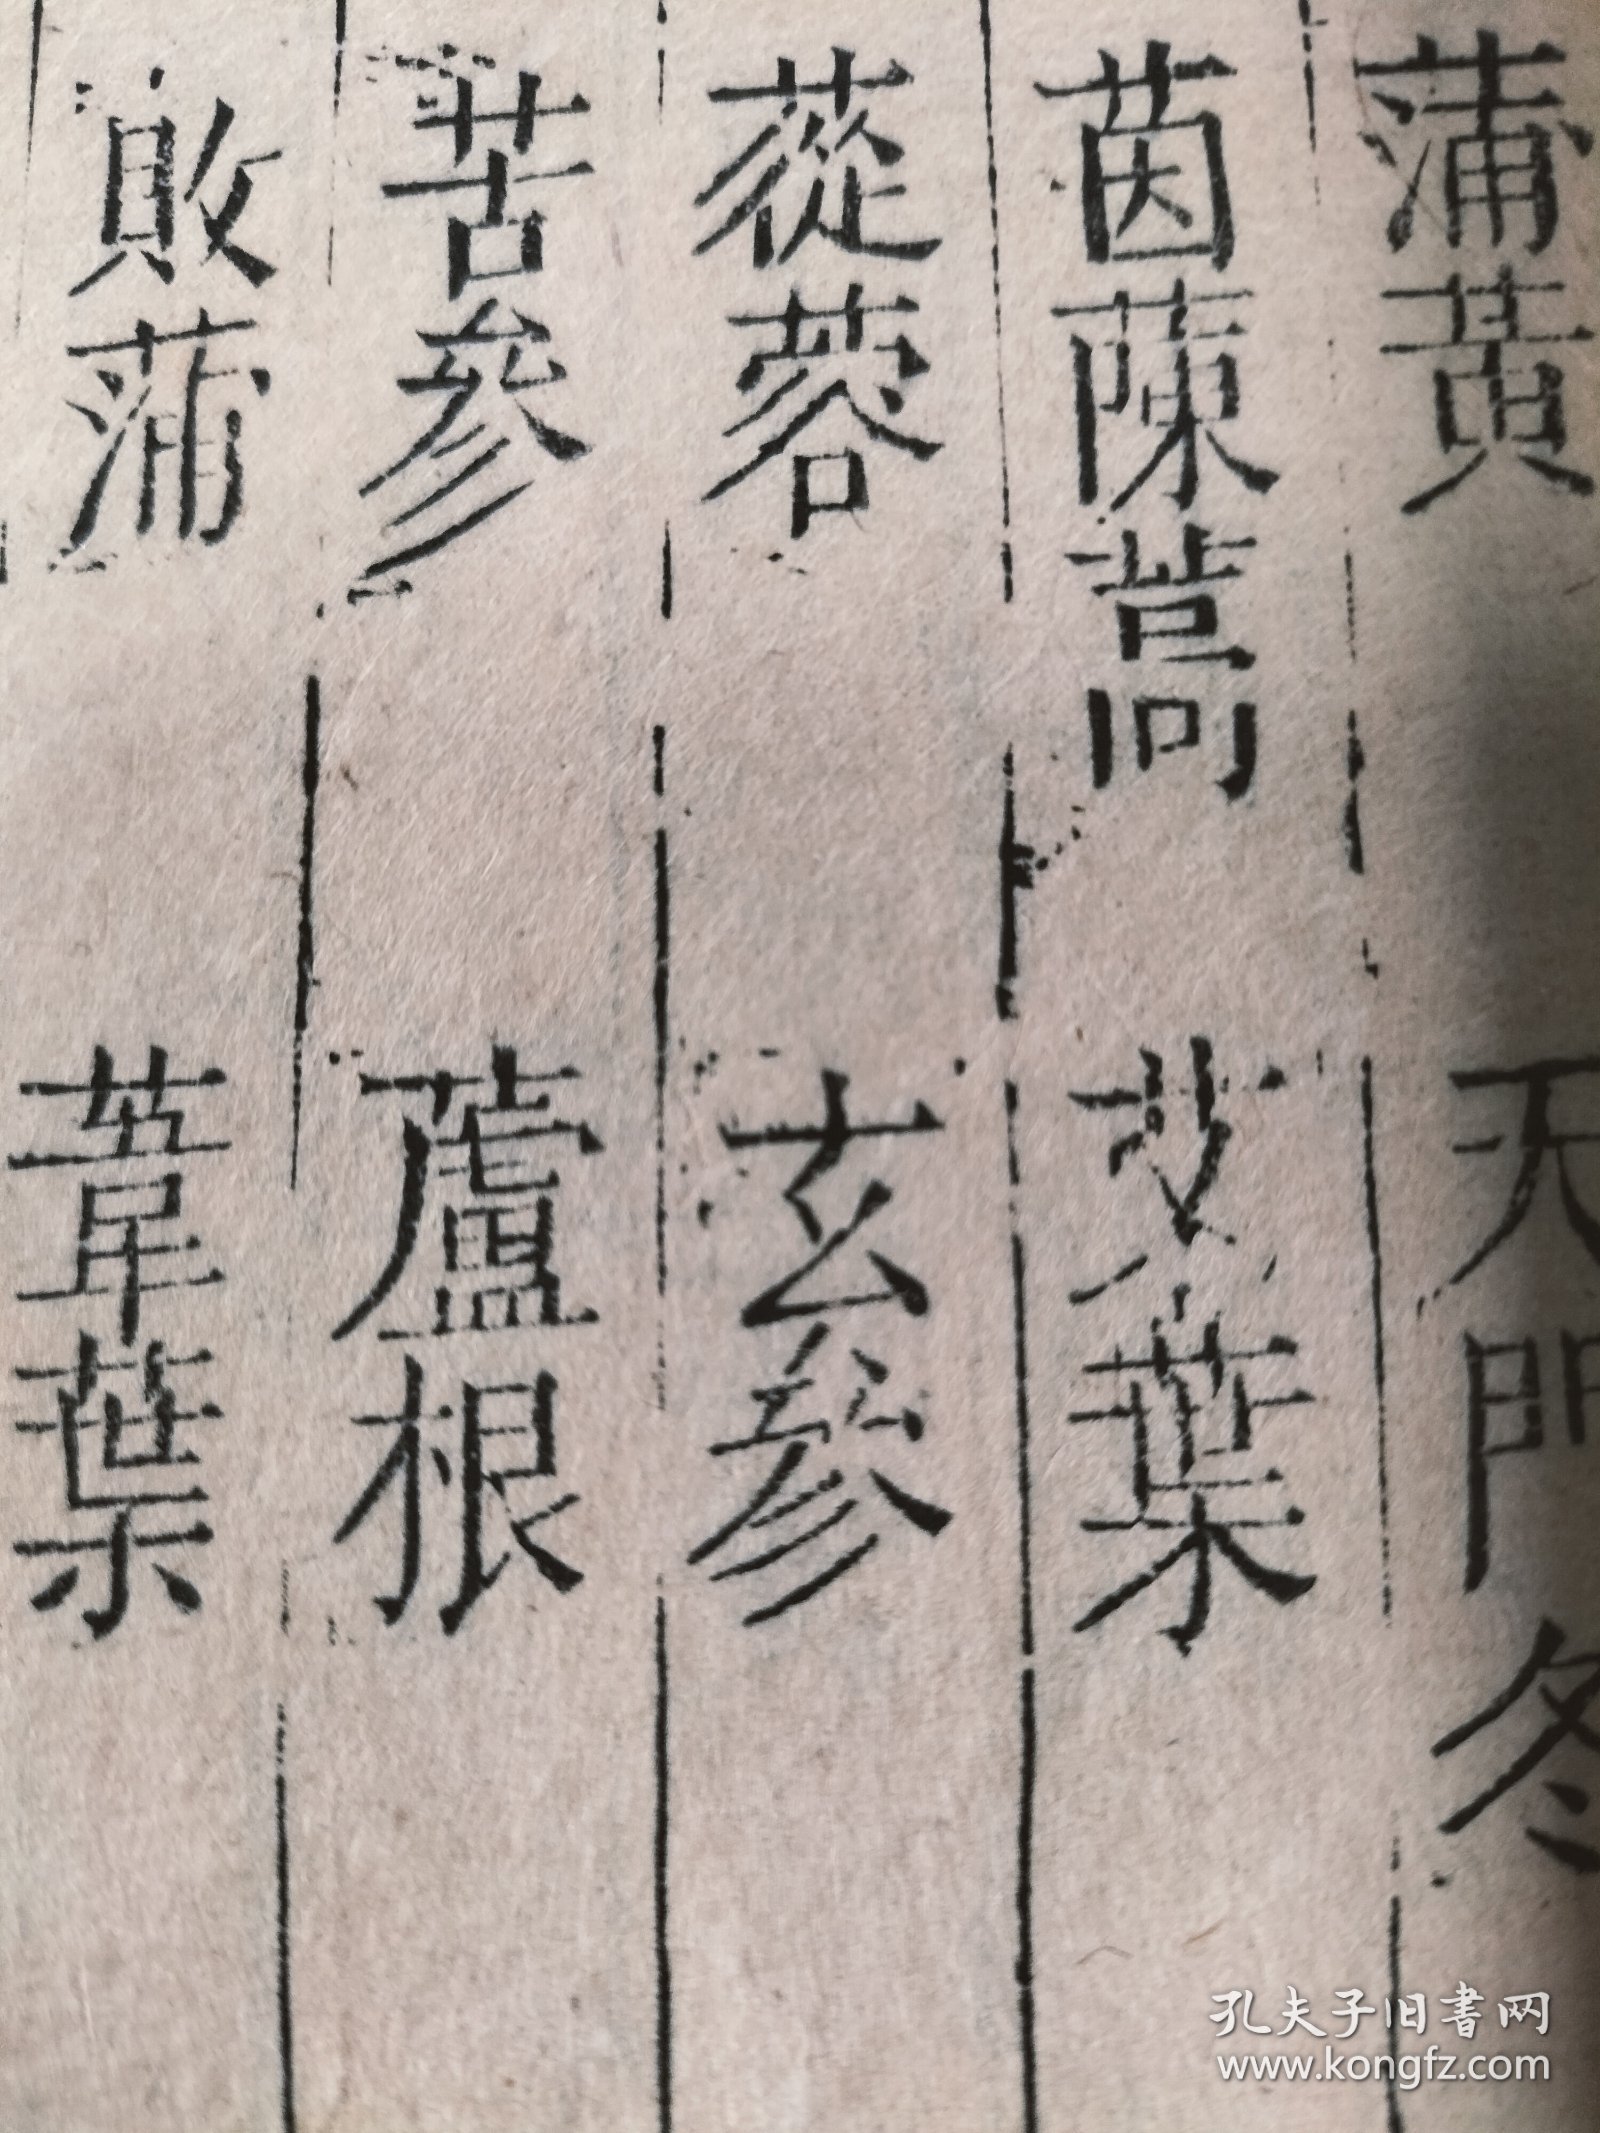 蒲黃 天門冬
茵蔯蒿 艾葉
蓯蓉 玄參
苦參 蘆根
敗蒲 葦葉
孔夫子旧書网
www.kongfz.com